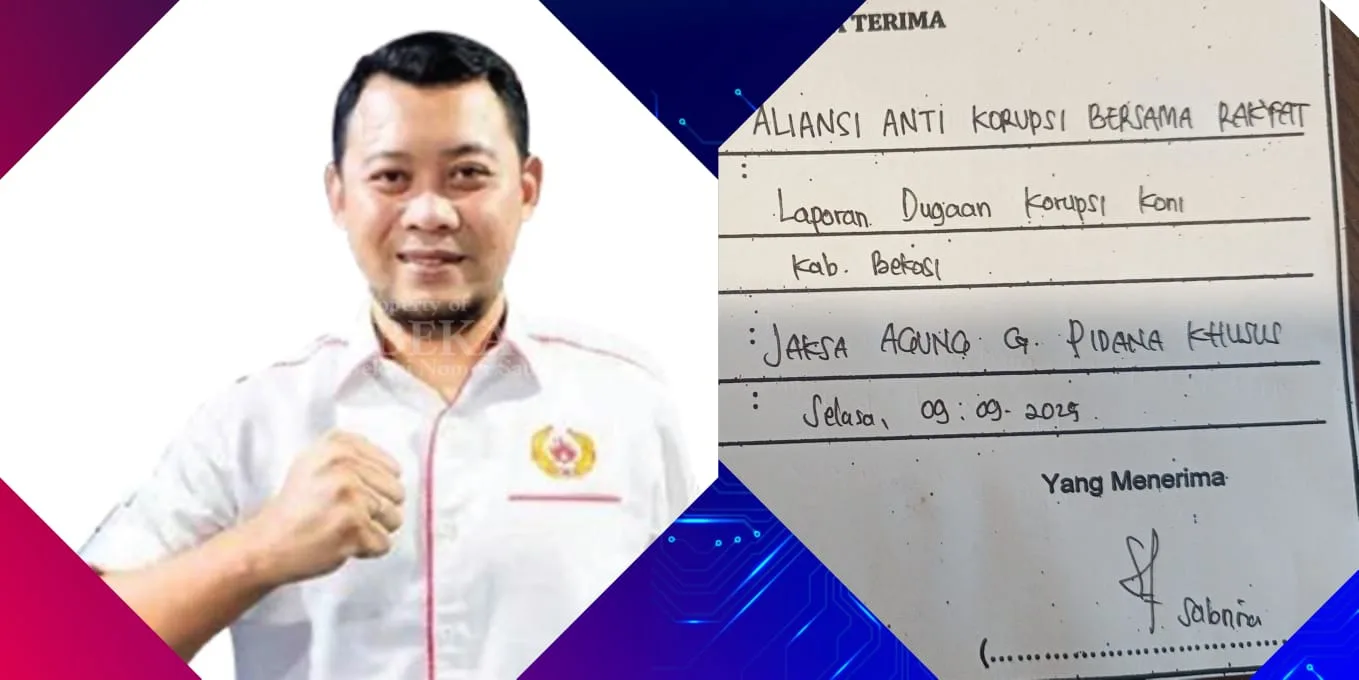 Property of
TERIMA
ALIANSI ANTI KORUPSI BERSAMA RAKYAT
:
Laporan Dugaan Korupsi Koni
Kab. Bekasi
: JAKSA AGUNG G. PIDANA KHUSUS
: Selasa, 09 : 09 - 2025.
Yang Menerima
Sabrina
(..............................